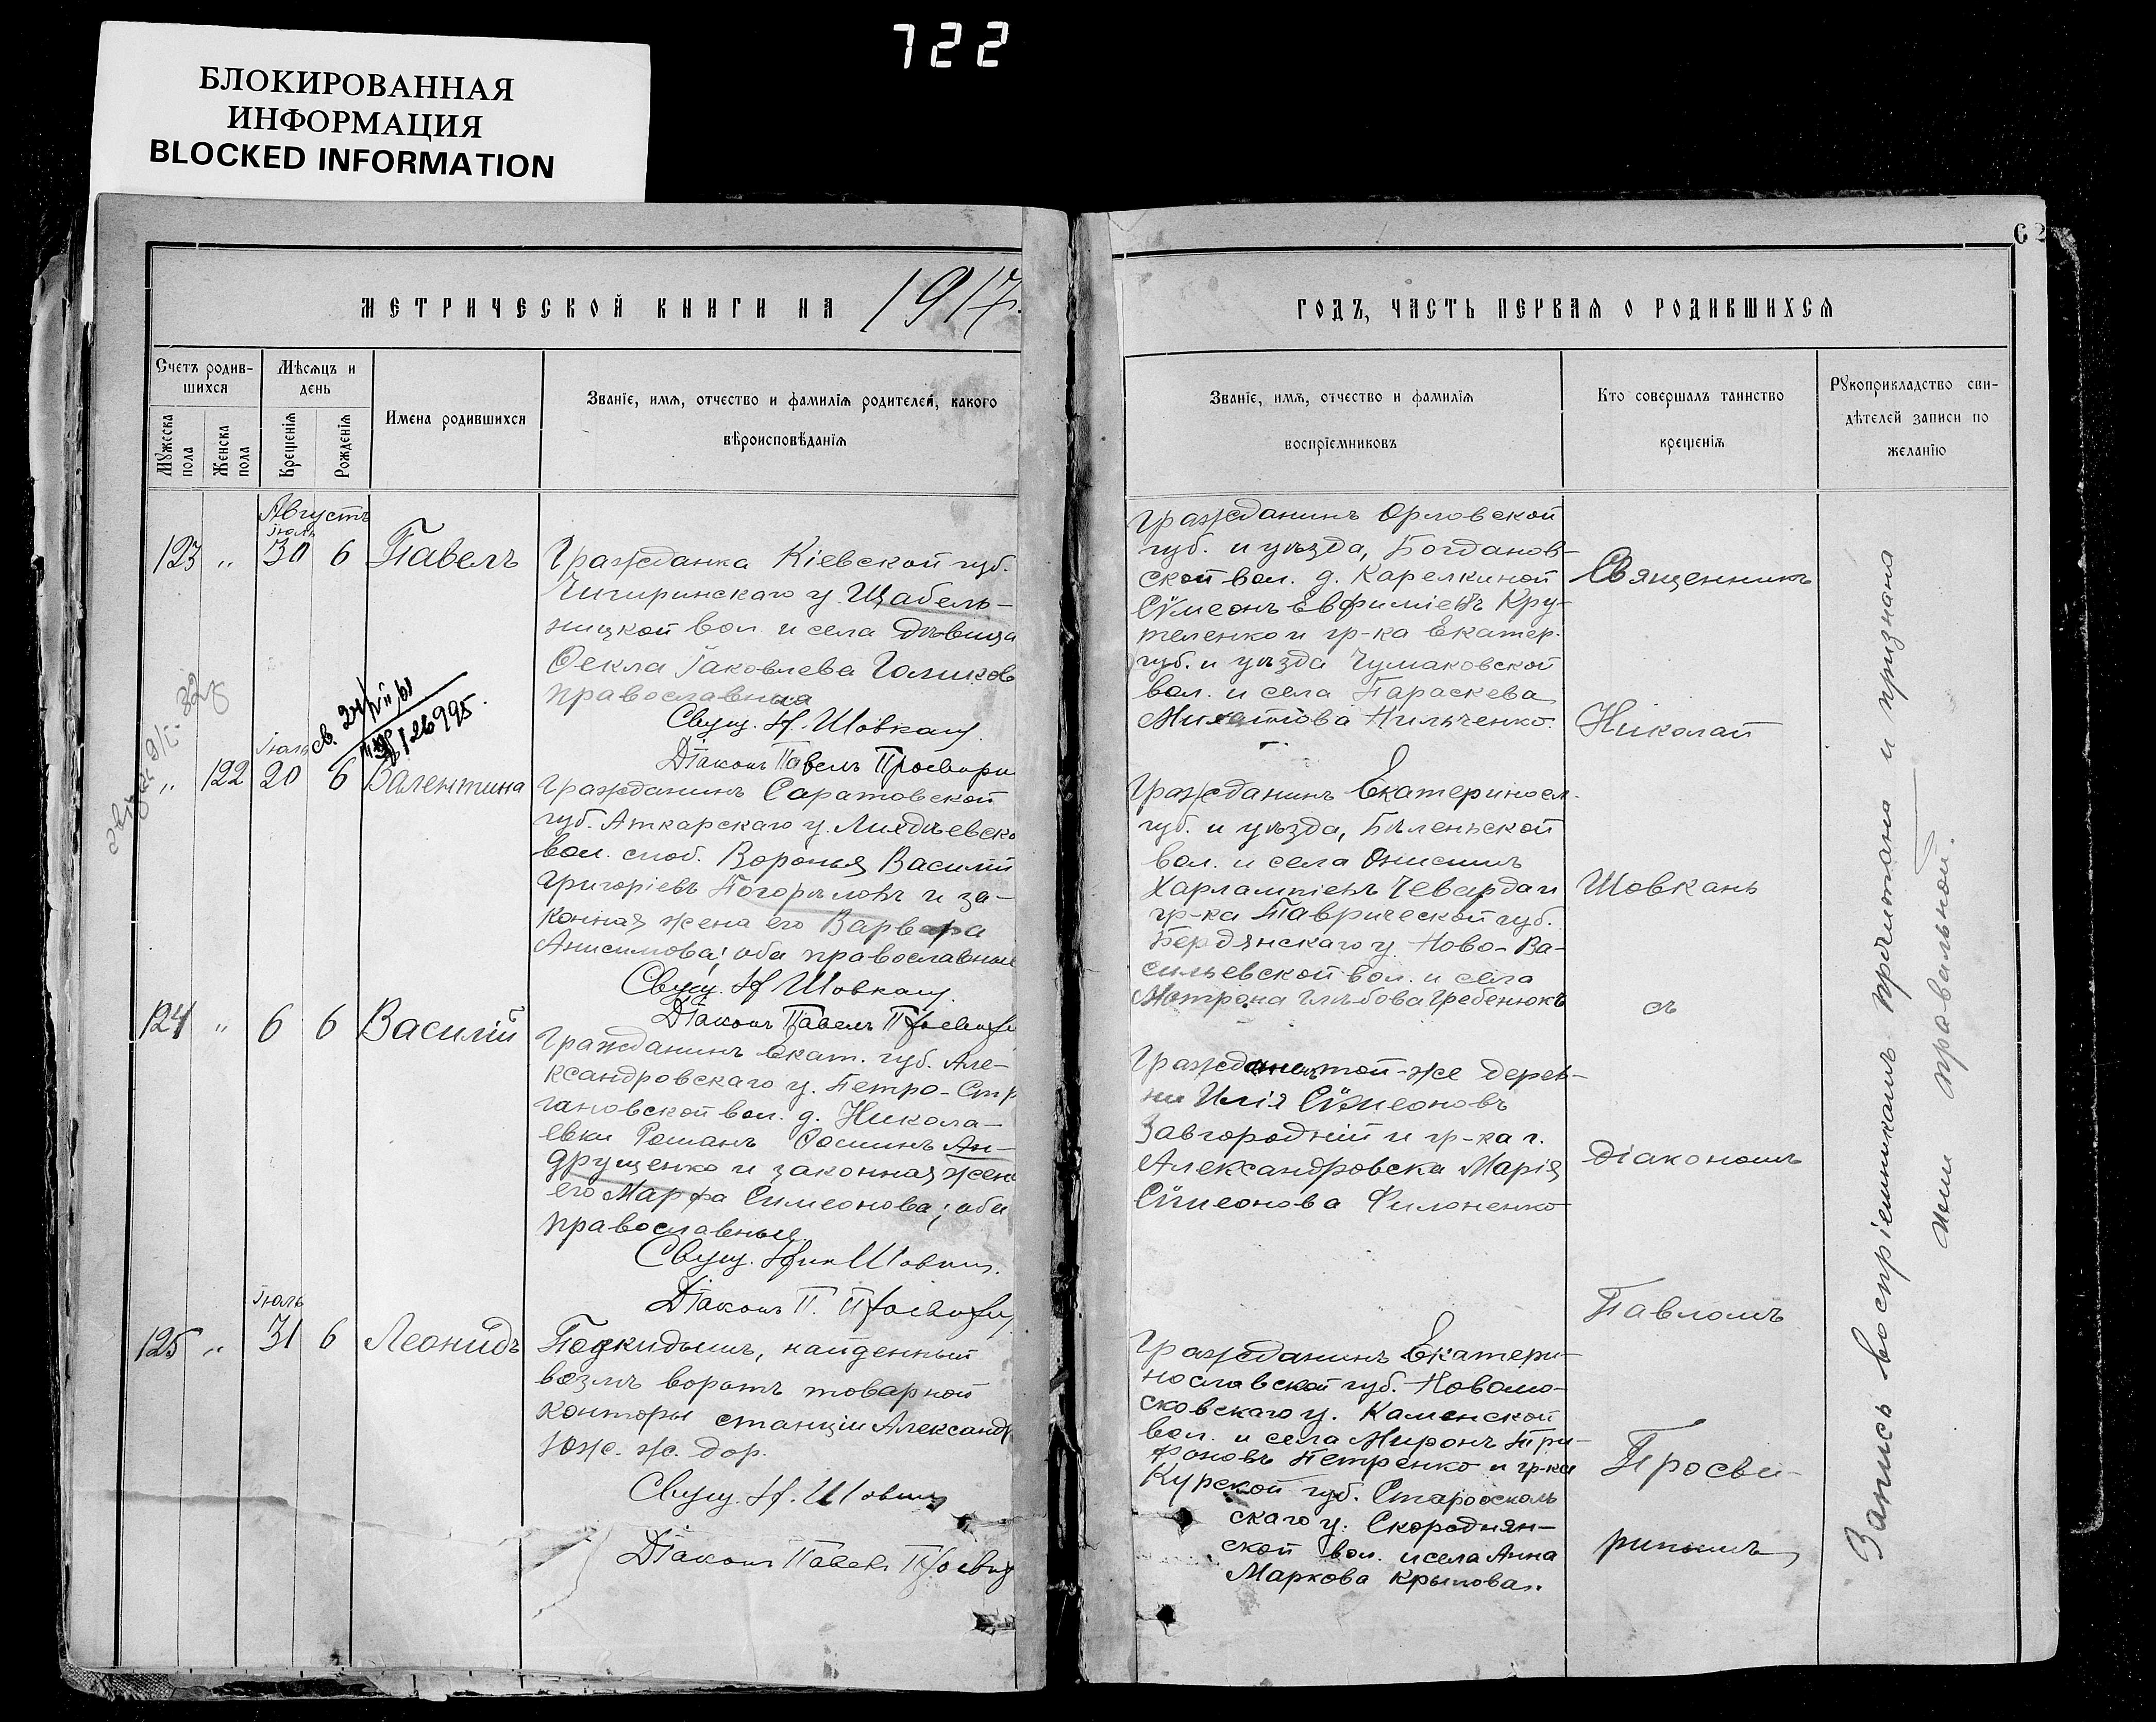 722
БЛОКИРОВАННАЯ
ИНФОРМАЦИЯ
BLOCKED INFORMATION
62
МЕТРИЧЕСКОЙ КНИГИ НА 1917
ГОДЪ, ЧАСТЬ ПЕРВАЯ О РОДИВШИХСЯ
Счетъ родив-
шихся
Мужеска
пола
Женска
пола
Мѣсяцъ и
день
Крещенія
Рожденія
Имена родившихся
Званіе, имя, отчество и фамилія родителей, какого
вѣроисповѣданія
Званіе, имя, отчество и фамилія
воспріемниковъ
Кто совершалъ таинство
крещенія
Рукоприкладство сви-
дѣтелей записи по
желанію
Августъ
іюль
123 " 30 6 Павелъ
Гражданка Кіевской губ.
Чигиринскаго у. Щабель-
ницкой вол. и села дѣвица
Ѳекла Іаковлева Голиков
православная
Свящ. Н. Шовкан
Діаконъ Павелъ Просвири
Гражданинъ Орловской
губ. и уѣзда, Богданов-
ской вол. д. Карелкиной
Сѵмеонъ Евфиміевъ Кру-
теленко и гр-ка Екатер.
губ. и уѣзда Чумаковской
вол. и села Параскева
Нильченко
іюль
" 122 20 6 Валентина
Гражданинъ Саратовской
губ. Аткарскаго у.
вол. слоб. Воронья Василій
Григоріевъ Погорѣловъ и за-
конная жена его Варвара
Анисимова; оба православные
Свящ. Н. Шовкан
Діаконъ Павелъ Просвири
Гражданинъ Екатериносл.
губ. и уѣзда, Бѣленьской
вол. и села Онисимъ
Харлампіевъ Чевардаи
гр-ка Таврической губ.
Бердянскаго у. Ново-Ва-
сильевской вол. и села
Матрона Глѣбова Гребенюкъ
124 " 6 6 Василій
Гражданинъ Екат. губ. Але-
ксандровскаго у. Петро-
вол. д. Никола-
евки Романъ Ан-
друщенко и законная жена
его Марфа Симеонова; оба
православные
Свящ. Ник Шовкан
Діаконъ П. Просвири
той-же дерев-
ни Илія Сѵмеоновъ
Завгородній и гр-ка г.
Александровска Марія
Сѵмеонова Филоненко
іюль
125 " 31 6 Леонидъ
Подкидышъ, найденный
возлѣ воротъ товарной
конторы станціи Александ
Юж. ж. дор.
Свящ. Н. Шовкан
Діаконъ Павел Просвир
Гражданинъ Екатери-
нославской губ. Новомо-
сковскаго у. Каменской
вол. и села Миронъ Три-
фоновъ Петренко и гр-ка
Курской губ. Староосколь
скаго у. Скороднян-
ской вол. и села Анна
Маркова Крылова.
Священникъ
Николай
Шовкань
съ
діакономъ
Павломъ
Просви-
ринымъ
Запись воспріемникамъ прочитана и признана
ими правильной.